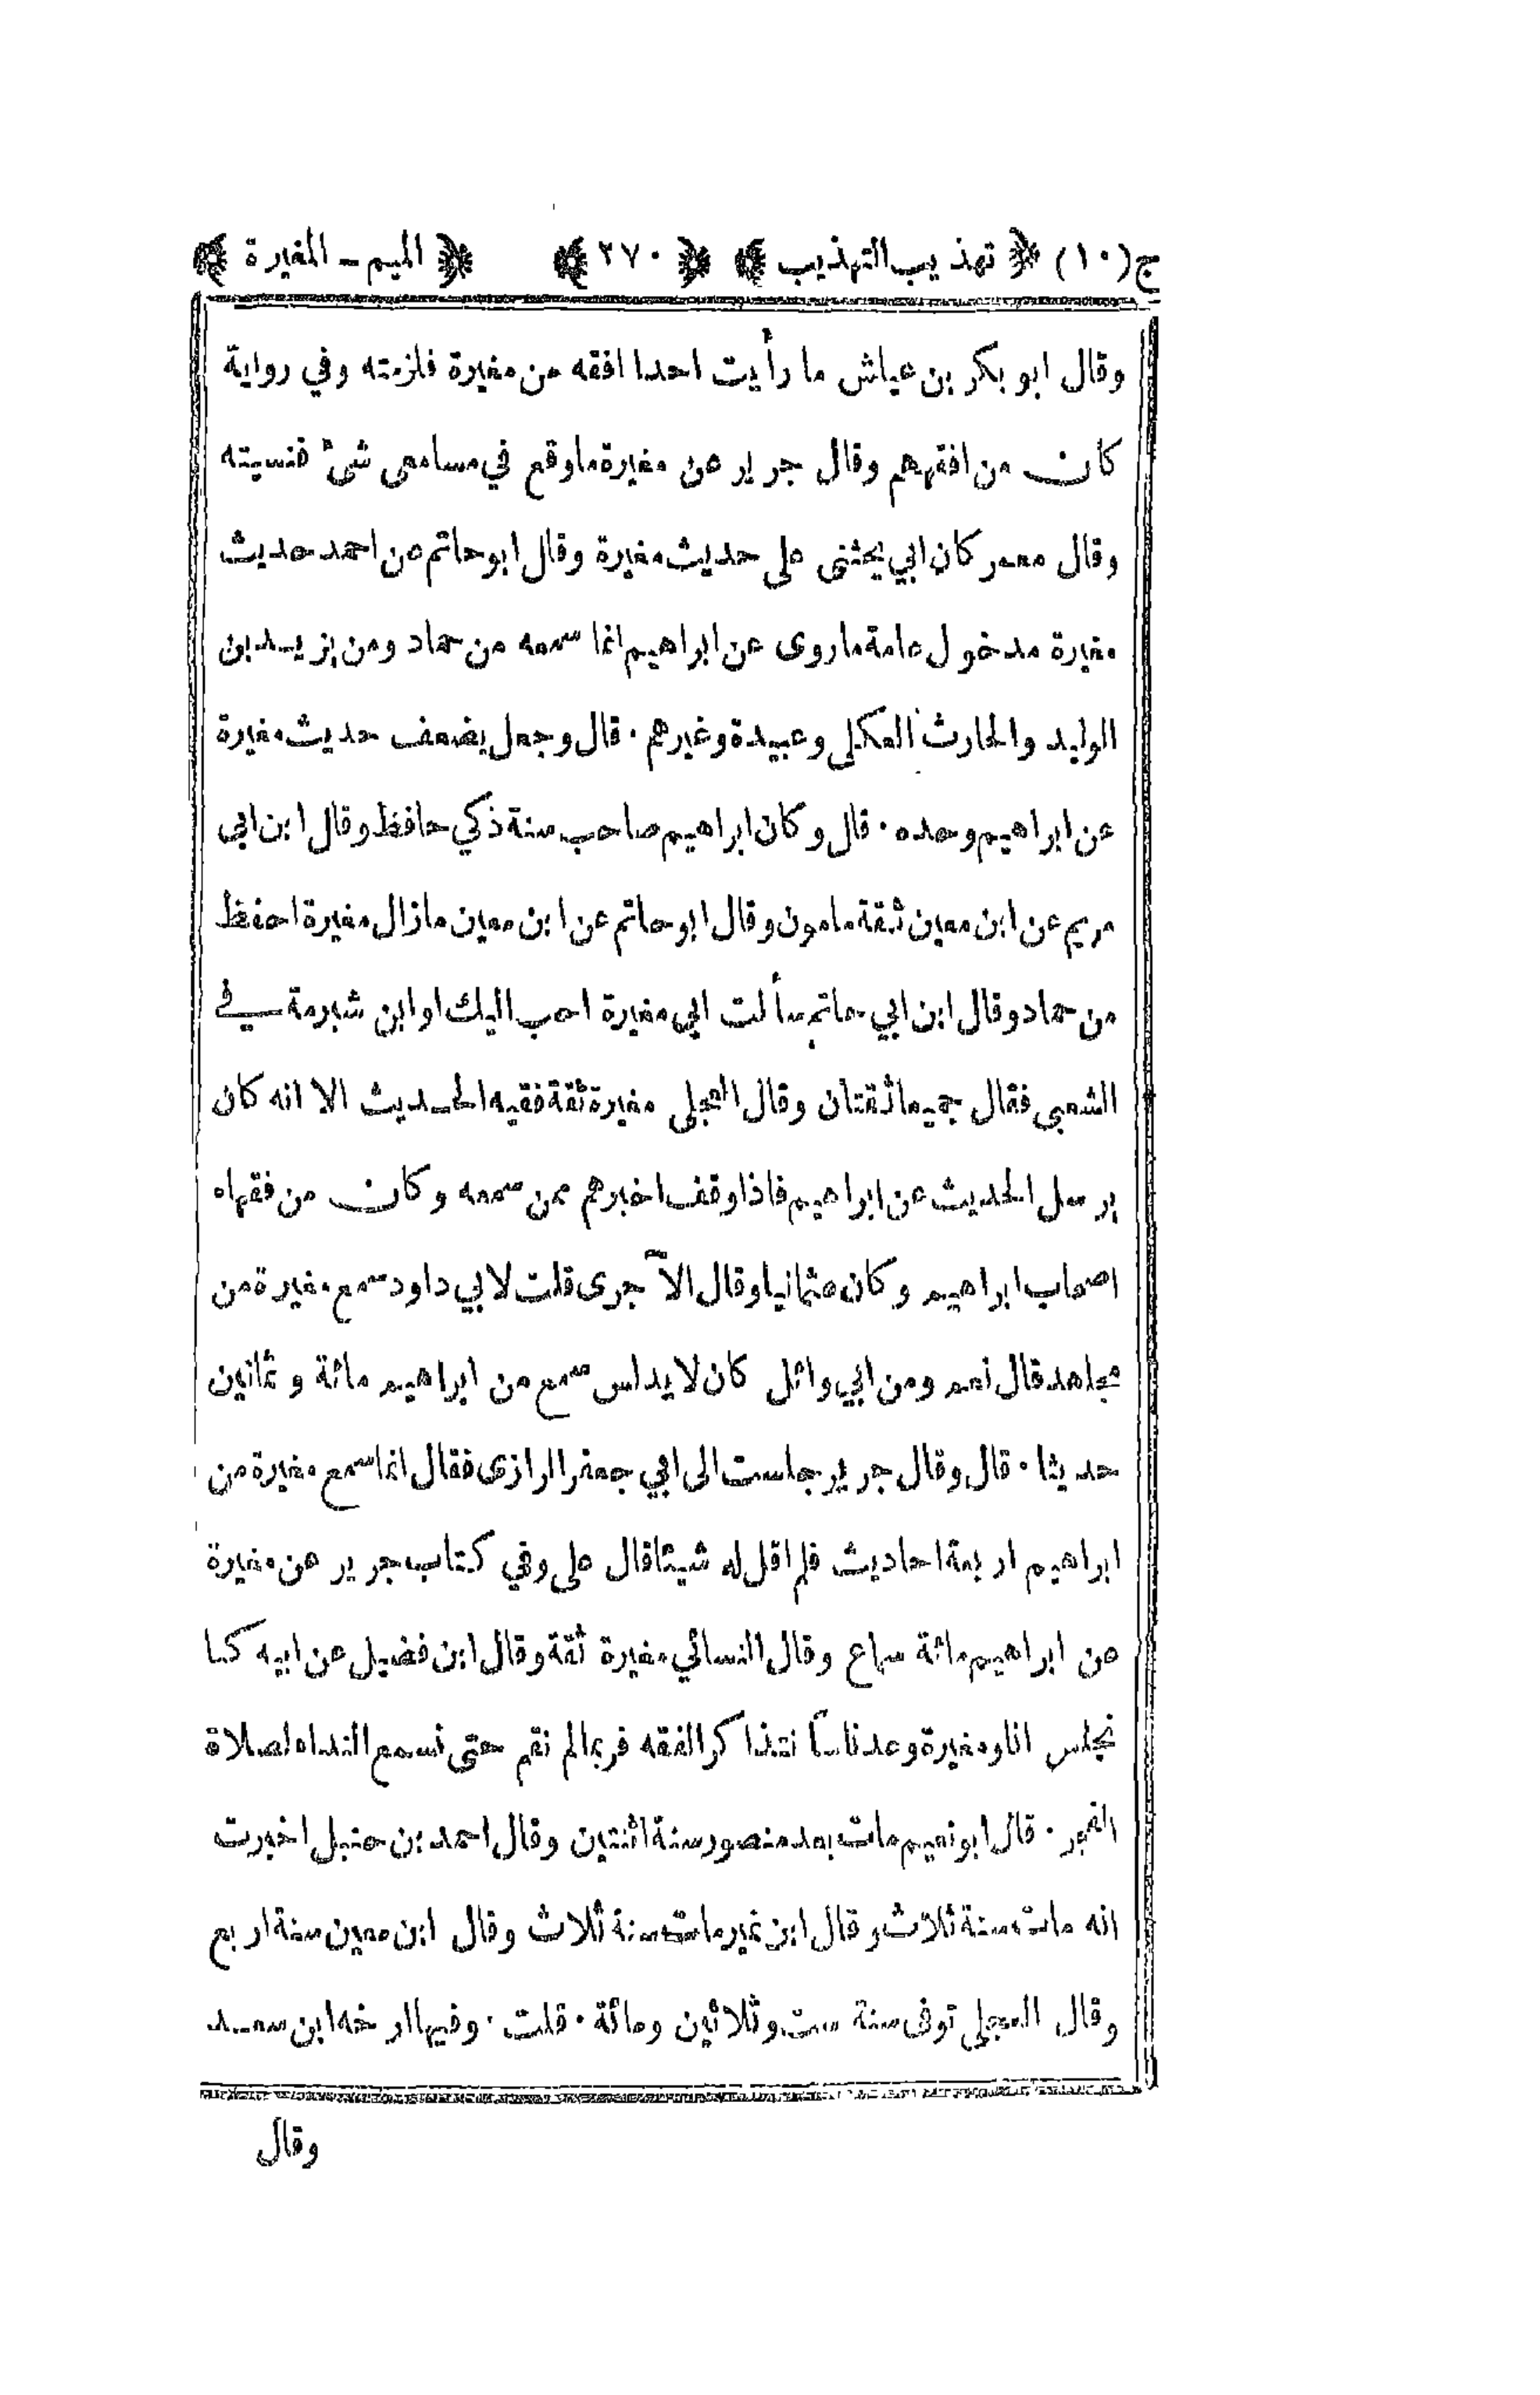 ج(١٠) ﴿ تهذيب التهذيب ﴾ ﴿ ٢٧٠ ﴾ ﴿ الميم ـ المغيرة ﴾
وقال ابو بكر بن عياش ما رأيت احدا افقه من مغيرة فلزمته وفي رواية
كان من افقههم وقال جرير عن مغيرة ما وقع في مسامعى شئ فنسيته
وقال معمر كان ابي يحثنى على حديث مغيرة وقال ابو حاتم عن احمد حديث
مغيرة مدخول عامة ما روى عن ابراهيم انما سمعه من حماد ومن يزيد بن
الوليد والحارث العكلى وعبيدة وغيرهم . قال وجعل يضعف حديث مغيرة
عن ابراهيم وحده . قال وكان ابراهيم صاحب سنة ذكي حافظ وقال ابن ابي
مريم عن ابن معين ثقة مامون وقال ابو حاتم عن ابن معين ما زال مغيرة احفظ
من حماد وقال ابن ابي حاتم سألت ابي مغيرة احب اليك او ابن شبرمة في
الشعبى فقال جميعا ثقتان وقال العجلى مغيرة ثقة فقيه الحديث الا انه كان
يرسل الحديث عن ابراهيم فاذا وقف اخبرهم ممن سمعه وكان من فقهاء
اصحاب ابراهيم وكان عثمانيا وقال الآجرى قلت لابي داود سمع مغيرة من
مجاهد قال نعم ومن ابي وائل كان لا يدلس سمع من ابراهيم مائة وثمانين
حديثا . قال وقال جرير جلست الى ابي جعفر الرازى فقال انما سمع مغيرة من
ابراهيم اربعة احاديث فلم اقل له شيئا قال على وفي كتاب جرير عن مغيرة
عن ابراهيم مائة سماع وقال النسائي مغيرة ثقة وقال ابن فضيل عن ابيه كنا
نجلس انا ومغيرة وعد ناسا نتذاكر الفقه فربما لم نقم حتى نسمع النداء لصلاة
الفجر . قال ابو نعيم مات بعد منصور سنة اثنتين وقال احمد بن حنبل اخبرت
انه مات سنة ثلاث وقال ابن نمير مات سنة ثلاث وقال ابن معين سنة اربع
وقال العجلى توفى سنة ست وثلاثين ومائة . قلت . وفيها ارخه ابن سعد
وقال